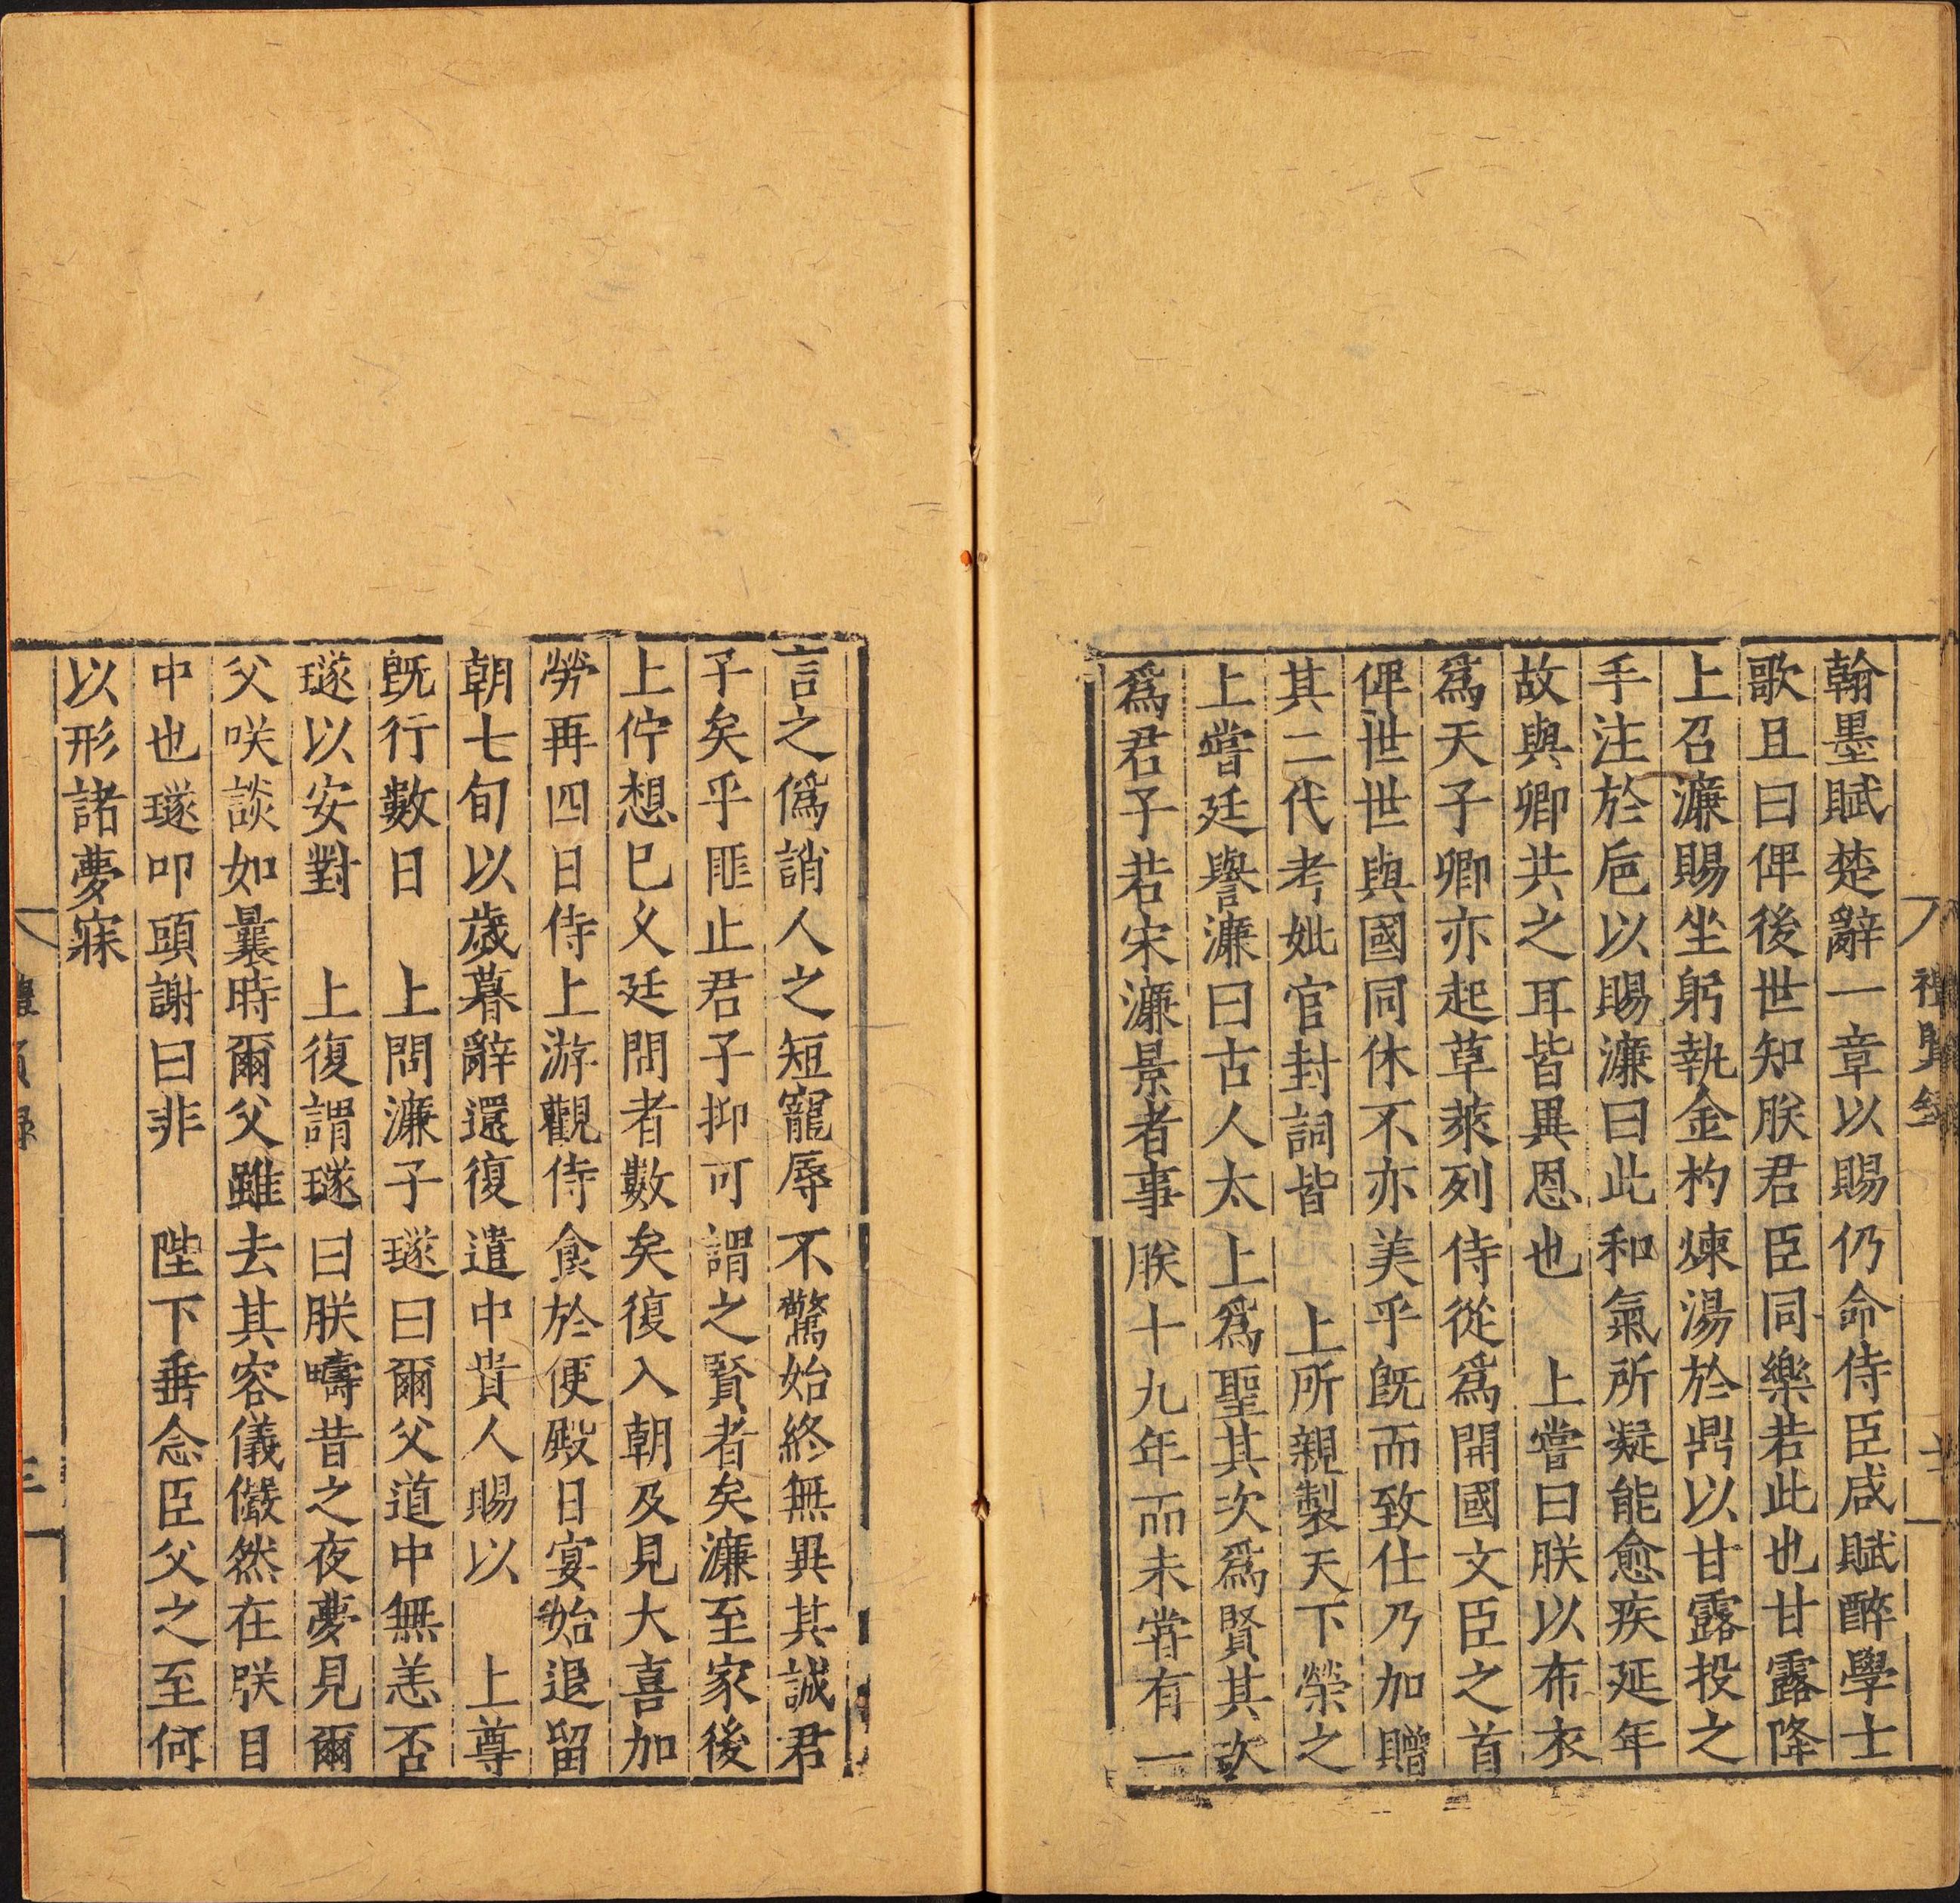 禮賢錄
翰墨賦楚辭一章以賜仍命侍臣咸賦醉學士
歌且曰俾後世知朕君臣同樂若此也甘露降
上召濂賜坐躬執金杓煉湯於鼎以甘露投之
手注於巵以賜濂曰此和氣所凝能愈疾延年
故與卿共之耳皆異恩也　上嘗曰朕以布衣
爲天子卿亦起草萊列侍從爲開國文臣之首
俾世世與國同休不亦美乎旣而致仕乃加贈
其二代考妣官封詞皆　上所親製天下榮之
上嘗廷譽濂曰古人太　上爲聖其次爲賢其次
爲君子若宋濂景者事朕十九年而未嘗有一
言之僞誚人之短寵辱不驚始終無異其誠君
子矣乎匪止君子抑可謂之賢者矣濂至家後
上佇想已乂廷問者數矣復入朝及見大喜加
勞再四日侍上游觀侍食於便殿日宴始退留
朝七旬以歲暮辭還復遣中貴人賜以　上尊
旣行數日　上問濂子璲曰爾父道中無恙否
璲以安對　上復謂璲曰朕疇昔之夜夢見爾
父咲談如曩時爾父雖去其容儀儼然在朕目
中也璲叩頭謝曰非　陛下垂念臣父之至何
以形諸夢寐
禮賢錄
三